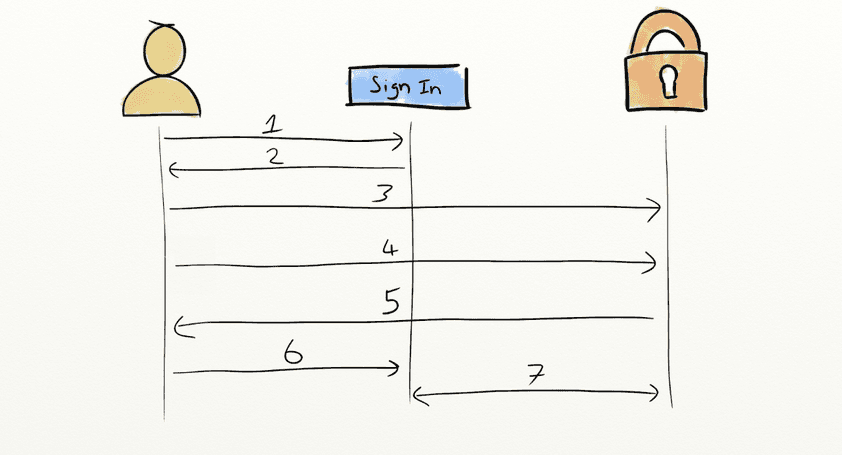 Sign In
1
2
3
4
5
6
7